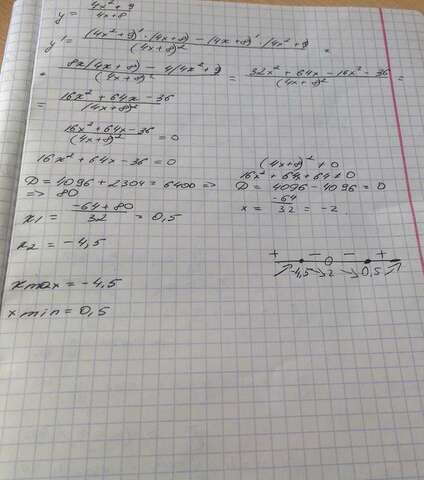 y = (4x² + 9)/(4x + 8)
y' = ((4x² + 9)' · (4x + 8) − (4x + 8)' · (4x² + 9))/(4x + 8)² =
= (8x(4x + 8) − 4(4x² + 9))/(4x + 8)² = (32x² + 64x − 16x² − 36)/(4x + 8)² =
= (16x² + 64x − 36)/(4x + 8)²
(16x² + 64x − 36)/(4x + 8)² = 0
16x² + 64x − 36 = 0
D = 4096 + 2304 = 6400 =>
=> 80
x1 = (−64 + 80)/32 = 0,5
x2 = −4,5
(4x + 8)² ≠ 0
16x² + 64x + 64 ≠ 0
D = 4096 − 4096 = 0
x = −64/32 = −2
+ − − +
−4,5 −2 0,5
x max = −4,5
x min = 0,5